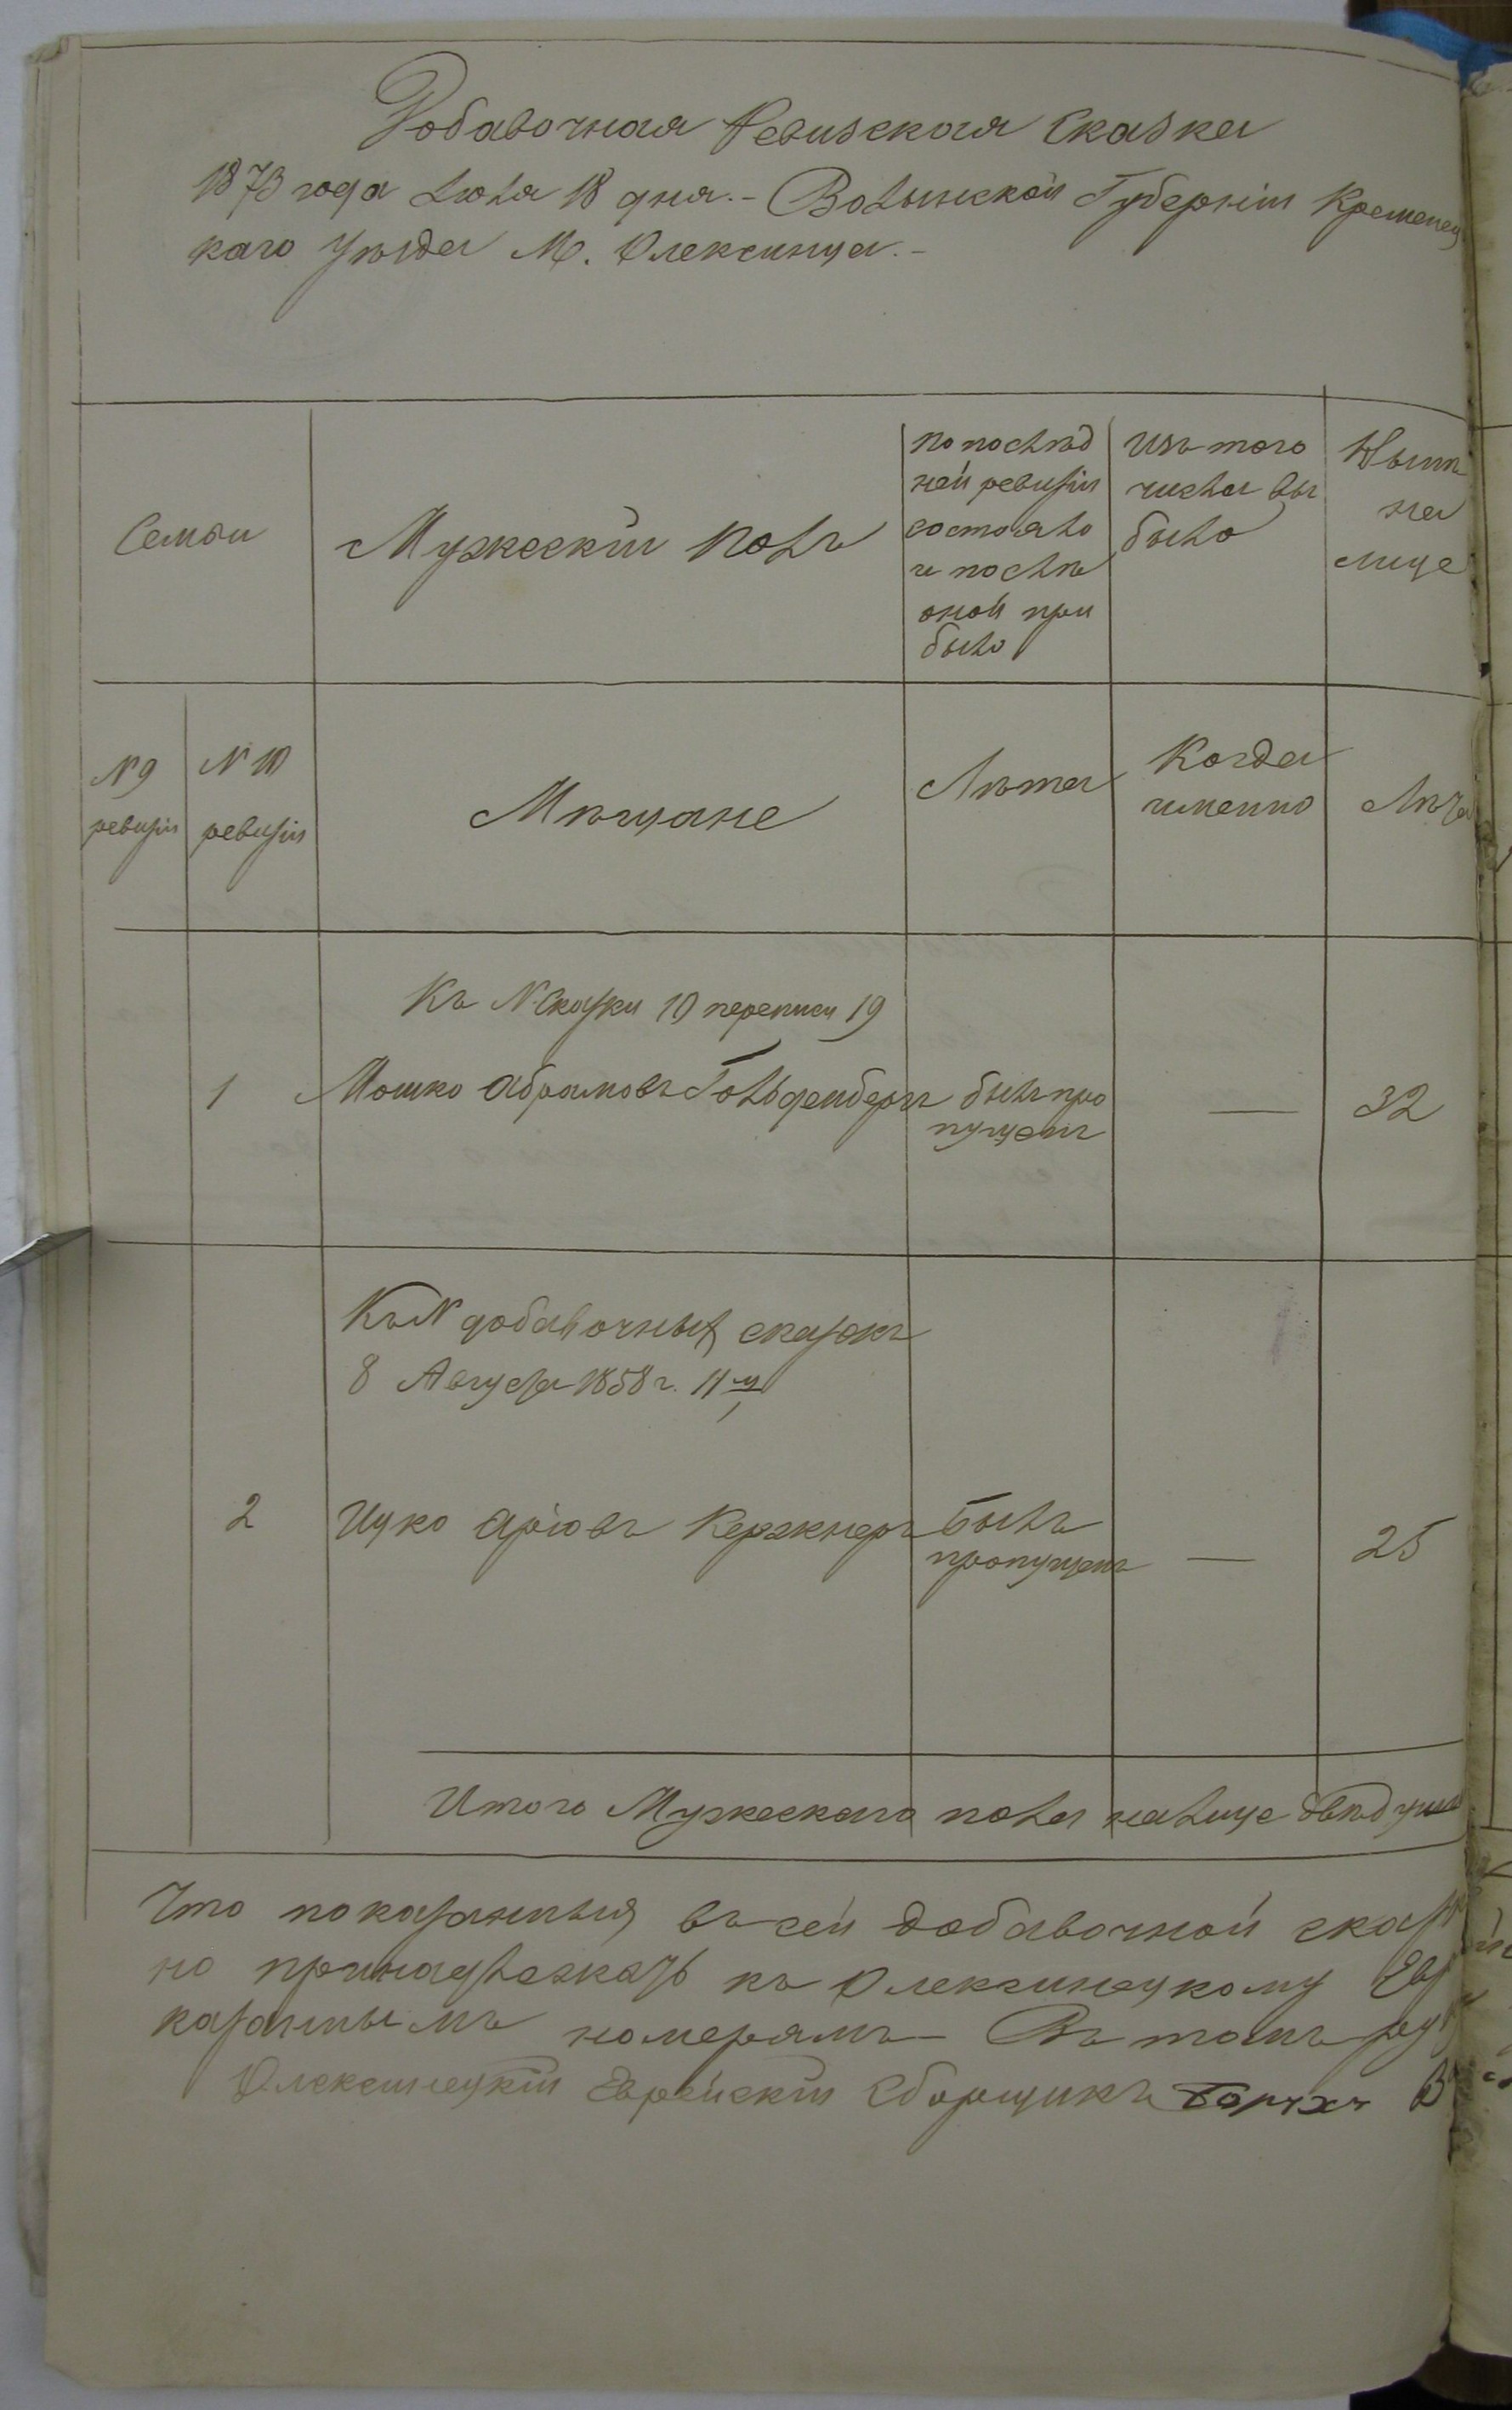 Добавочная Ревизская Сказка
1873 года Июля 18 дня.- Волынской Губерніи Кременец
каго Уѣзда М. Олексинца.-
Семьи
Мужескій полъ
По послѣд
ней ревизіи
состояло
и послѣ
оной при
было
Изъ того
числа вы
было
Нынѣ
на
лице
№ 9
ревизіи
№ 10
ревизіи
Мѣщане
Лѣта
Когда
именно
Лѣта
Къ № Сказки 10 переписи 19
1
Мошко Абрамовъ Гольденберъ
былъ про
пущенъ
—
32
Къ № добавочныхъ сказокъ
8 Августа 1858 г. 11
2
Ицко Аріовъ Кержнеръ
Былъ
пропущенъ
—
25
Итого Мужескаго пола налице двѣ душа
Что показанныя въ сей добавочной сказк
но принадлежатъ къ Олексинецкому Евр
казаннымъ номерамъ – Въ томъ ру
Олексинецкій Еврейскій Сборщикъ Борухъ В